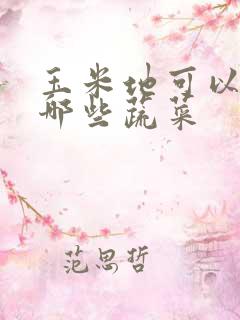 玉米地可以
那些蔬菜
范思哲